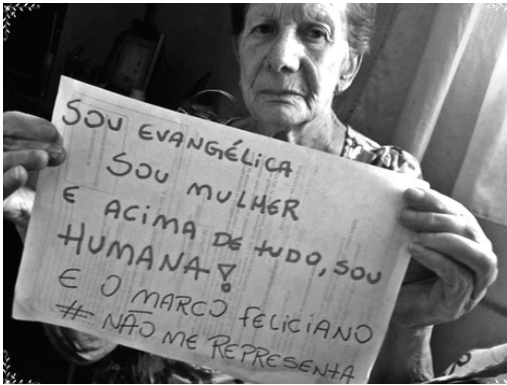 SOU EVANGÉLICA
SOU MULHER
E ACIMA DE TUDO, SOU
HUMANA!
E O MARCO FELICIANO
# NÃO ME REPRESENTA